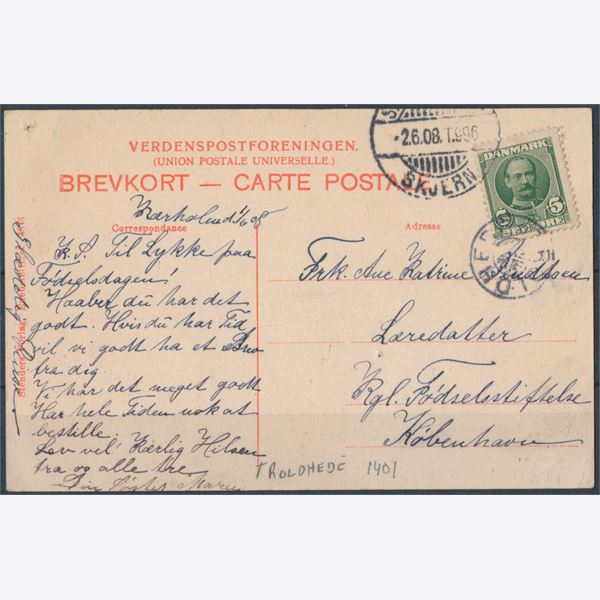 VERDENSPOSTFORENINGEN.
(UNION POSTALE UNIVERSELLE.)
BREVKORT — CARTE POSTALE
2.6.08. T.996
SKJERN
DANMARK
5 5
ØRE
Correspondance
Adresse
1/6 08
K. S. Til Lykke paa
Fødselsdagen!
Haaber du har det
godt. Hvis du har Tid
vil vi godt ha et Brev
fra dig.
Vi har det meget godt.
Har hele Tiden nok at
bestille.
Lev vel! Kærlig Hilsen
fra og alle tre
Din Søster Maren
Frk. Ane Katrine
Læredatter
Kgl. Fødselsstiftelse
København
TROLDHEDE 1401